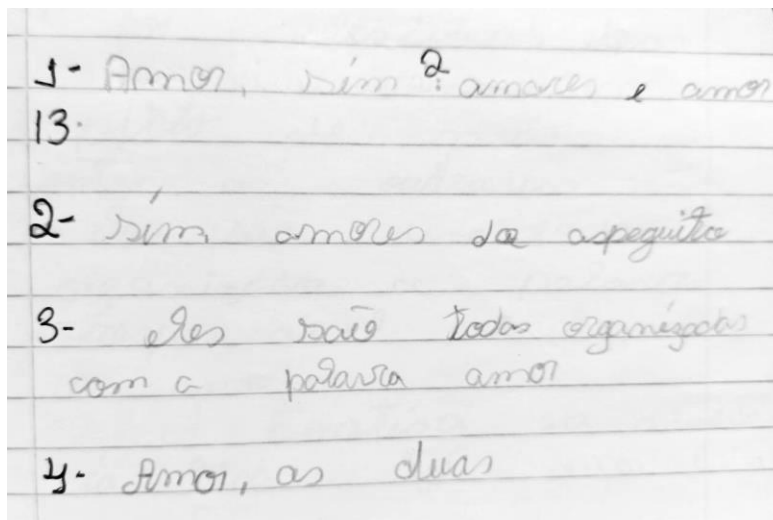 1- Amor, sim 2 amores e amor
13.
2- sim, amores da aspeguita
3- eles são todas organizadas
com a palavra amor
4- Amor, as duas